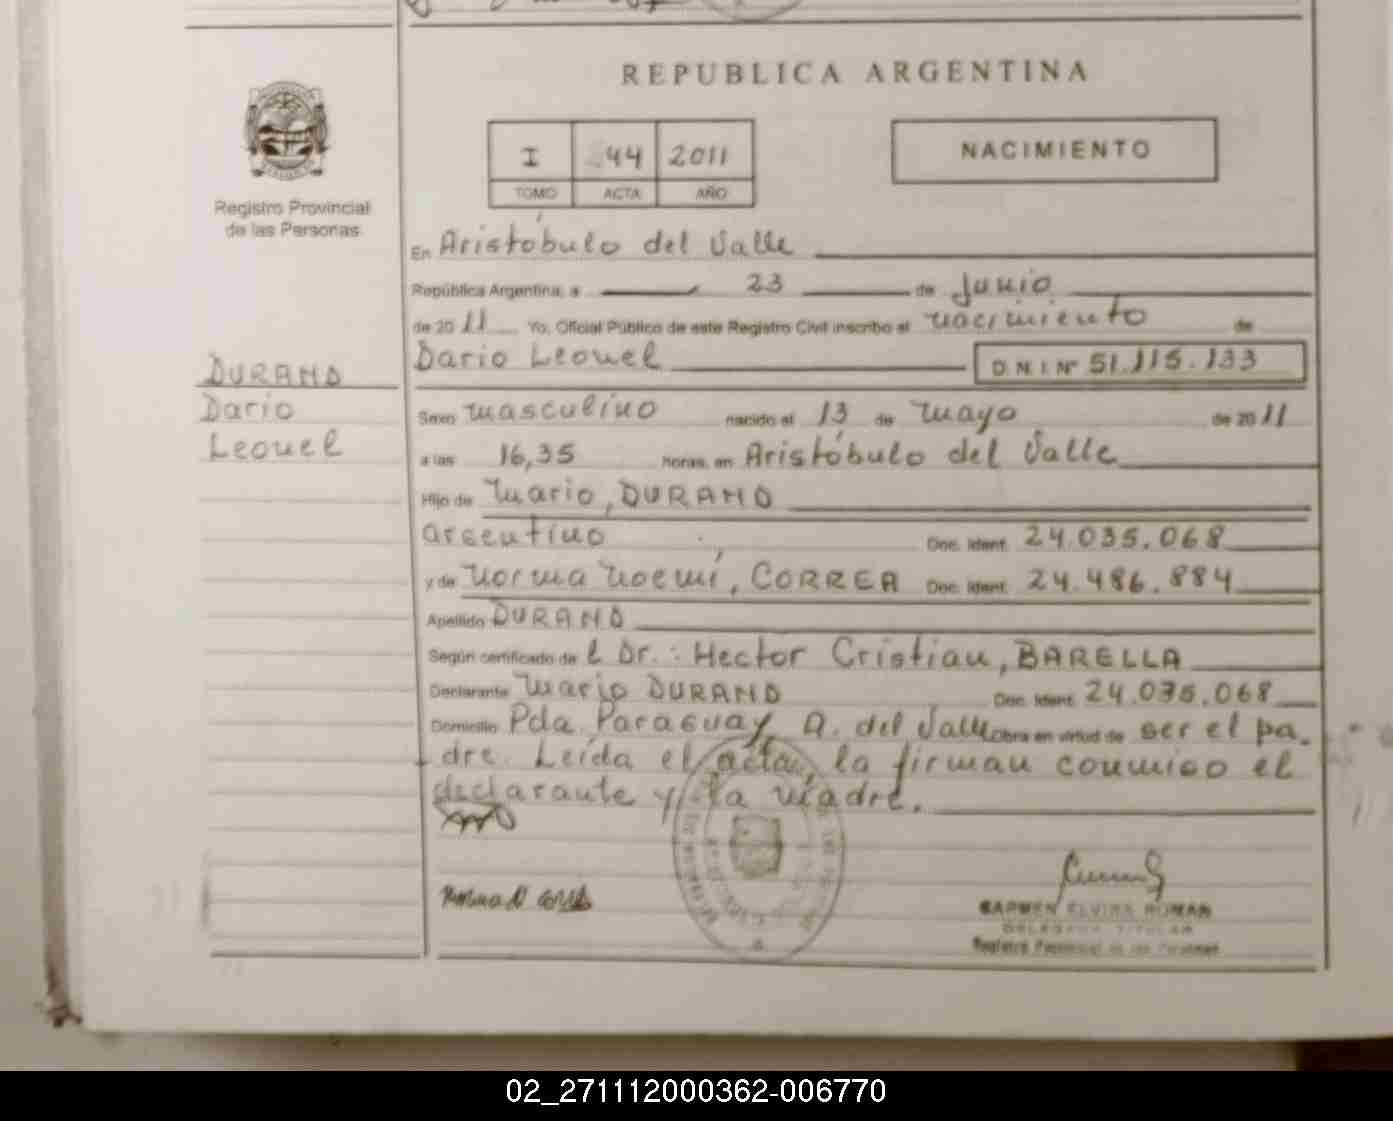 REPUBLICA ARGENTINA
I 44 2011
TOMO ACTA AÑO
NACIMIENTO
Registro Provincial
de las Personas
En Aristóbulo del Valle
República Argentina, a 23 de Junio
de 2011 Yo, Oficial Público de este Registro Civil inscribo el nacimiento de
Dario Leonel D.N.I. Nº 51.115.133
DURAND
Dario
Leonel
Sexo masculino nacido el 13 de mayo de 2011
a las 16,35 horas, en Aristóbulo del Valle
Hijo de Mario, DURAND
argentino Doc. Ident. 24.035.068
y de Norma Noemí, CORREA Doc. Ident. 24.486.884
Apellido DURAND
Según certificado de l Dr.: Hector Cristian, BARELLA
Declarante Mario DURAND Doc. Ident. 24.035.068
Domicilio Pda. Paraguay, A. del Valle Obra en virtud de ser el pa-
dre. Leída el acta, la firman conmigo el
declarante y la madre.
Norma N
CARMEN ELVIRA ROMAN
DELEGADA TITULAR
Registro Provincial de las Personas
02_271112000362-006770